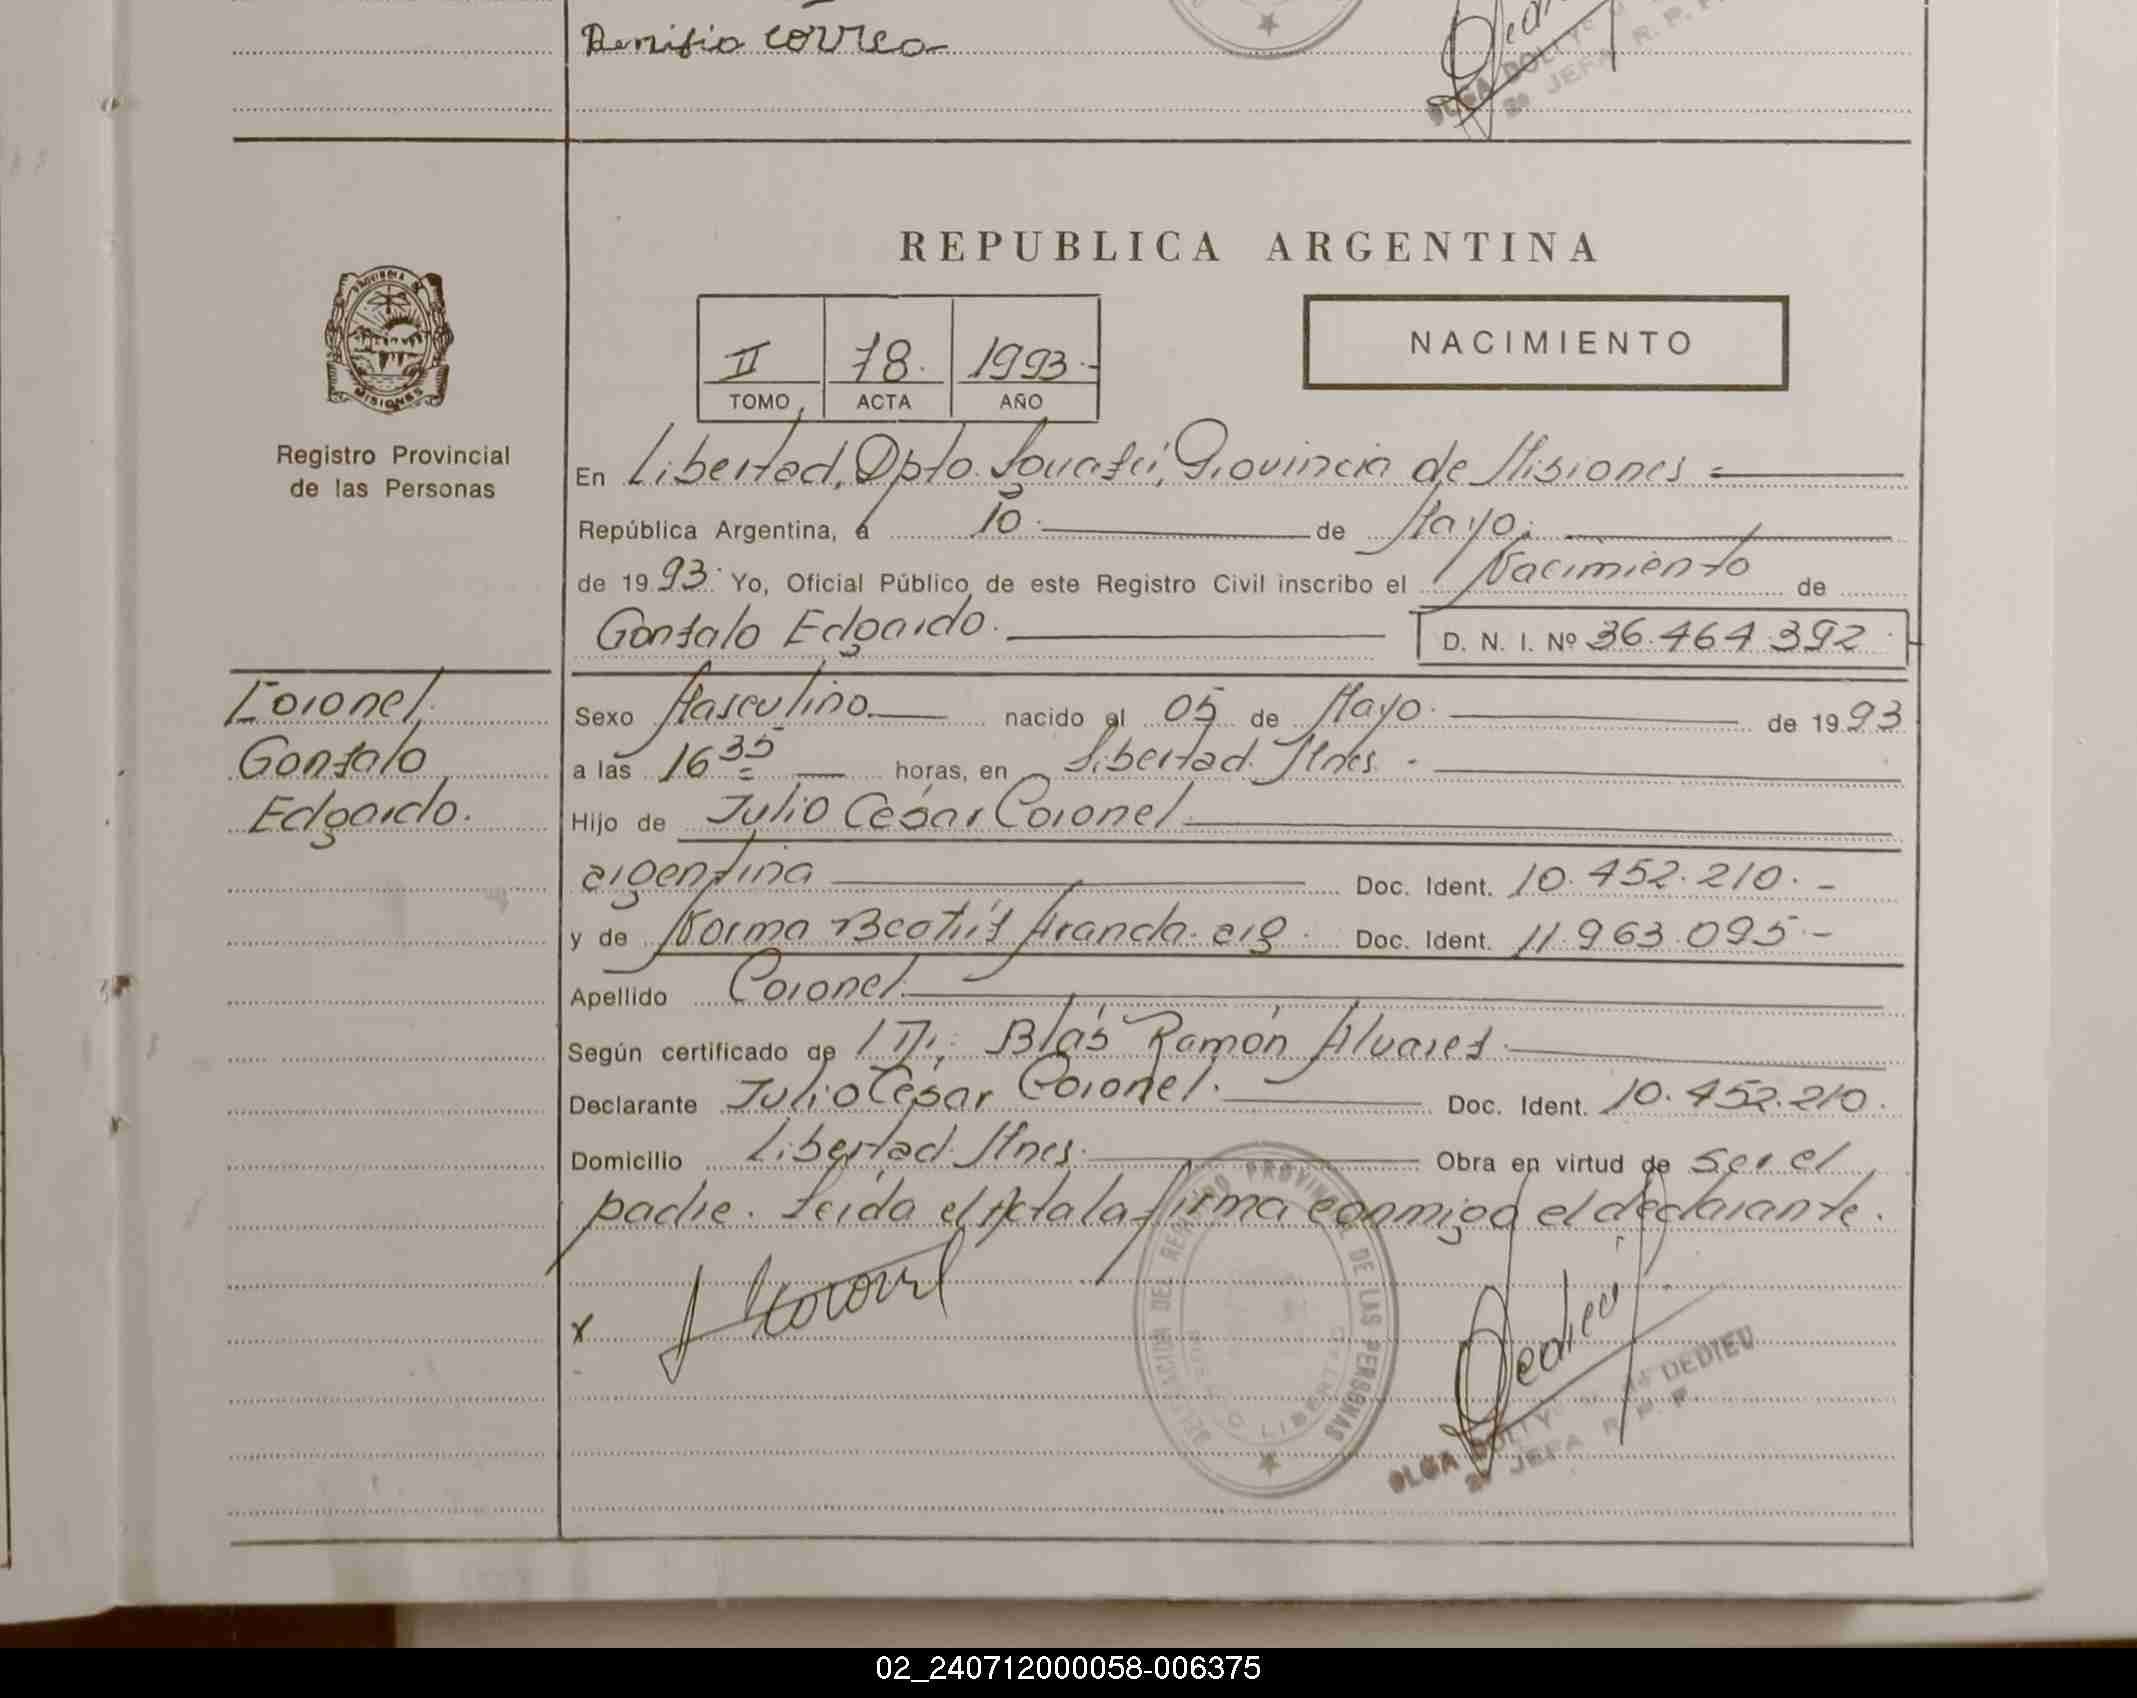 Denisio Correa
REPUBLICA ARGENTINA
II 78. 1993.-
TOMO ACTA AÑO
NACIMIENTO
PROVINCIA DE MISIONES
Registro Provincial
de las Personas
En Libertad, Dpto. Iguazú, Provincia de Misiones =
República Argentina, a 10. de Mayo.
de 1993. Yo, Oficial Público de este Registro Civil inscribo el Nacimiento de
Gonzalo Edgardo.
D. N. I. Nº 36.464.392.
Coronel
Gonzalo
Edgardo.
Sexo Masculino nacido el 05 de Mayo. de 1993
a las 16 35 horas, en Libertad. Mnes.
Hijo de Julio César Coronel
argentina Doc. Ident. 10.452.210.-
y de Norma Beatriz Aranda. arg. Doc. Ident. 11.963.095.-
Apellido Coronel
Según certificado de Blás Ramón Alvarez.
Declarante Julio César Coronel. Doc. Ident. 10.452.210.
Domicilio Libertad. Mnes. Obra en virtud de ser el
padre. Leida el Acta la firma conmigo el declarante.
x
DELEGACION DEL REGISTRO PROVINCIAL DE LAS PERSONAS
LIBERTAD
OLGA DOLLY DEDIEU
2ª JEFA R. P. P.
02_240712000058-006375